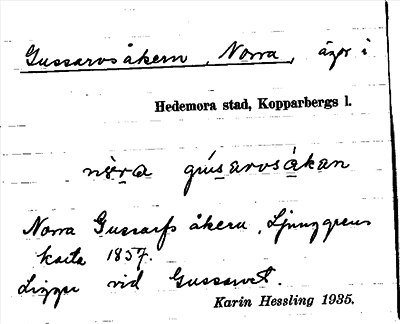 Gussarvsåkern, Norra, ägor i
Hedemora stad, Kopparbergs l.
nèra gússarvsåkan
Norra Gussarfs åkern, Ljunggrens
karta 1857.
Ligger vid Gussarvet.
Karin Hessling 1935.